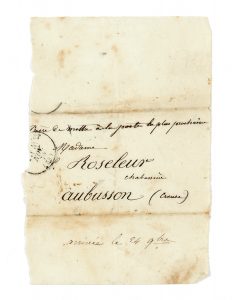 Prière de mettre à la poste la plus prochaine
Madame
Roseleur
chabassière
aubusson (Creuse)
arrivée le 24 9bre